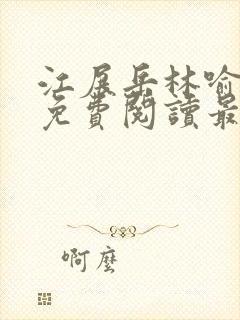 江展岳林喻
免費閱讀最
啊麼